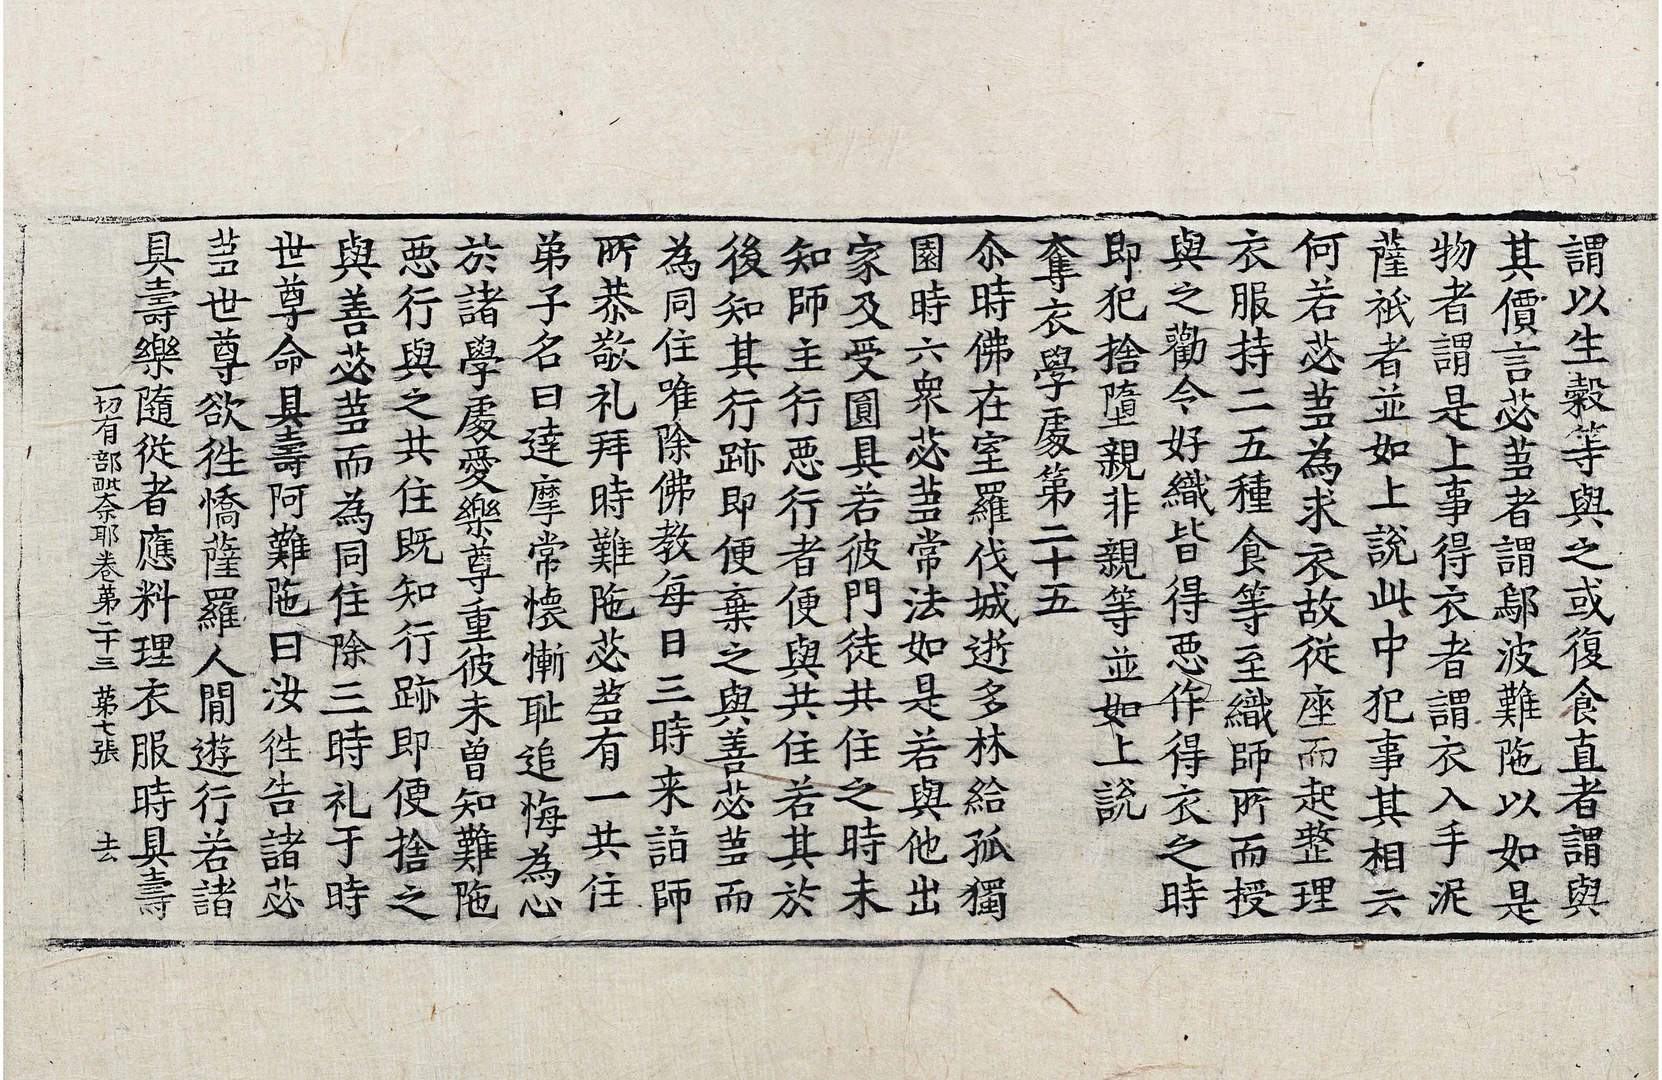 謂以生穀等與之或復食直者謂與
其價言苾蒭者謂鄔波難陁以如是
物者謂是上事得衣者謂衣入手泥
薩祇者並如上說此中犯事其相云
何若苾蒭為求衣故從座而起整理
衣服持二五種食等至織師所而授
與之勸令好織皆得悪作得衣之時
即犯捨墮親非親等並如上說
奪衣學處第二十五
尒時佛在室羅伐城逝多林給孤獨
園時六衆苾蒭常法如是若與他出
家及受圓具若彼門徒共住之時未
知師主行悪行者便與共住若其於
後知其行跡即便棄之與善苾蒭而
為同住唯除佛教每日三時来詣師
所恭敬礼拜時難陁苾蒭有一共住
弟子名曰達摩常懐慚耻追悔為心
於諸學處愛樂尊重彼未曾知難陁
悪行與之共住既知行跡即便捨之
與善苾蒭而為同住除三時礼于時
世尊命具壽阿難陁曰汝徃告諸苾
蒭世尊欲徃憍薩羅人間遊行若諸
具壽樂隨從者應料理衣服時具壽
一切有部毗奈耶卷第二十三 第七張 去